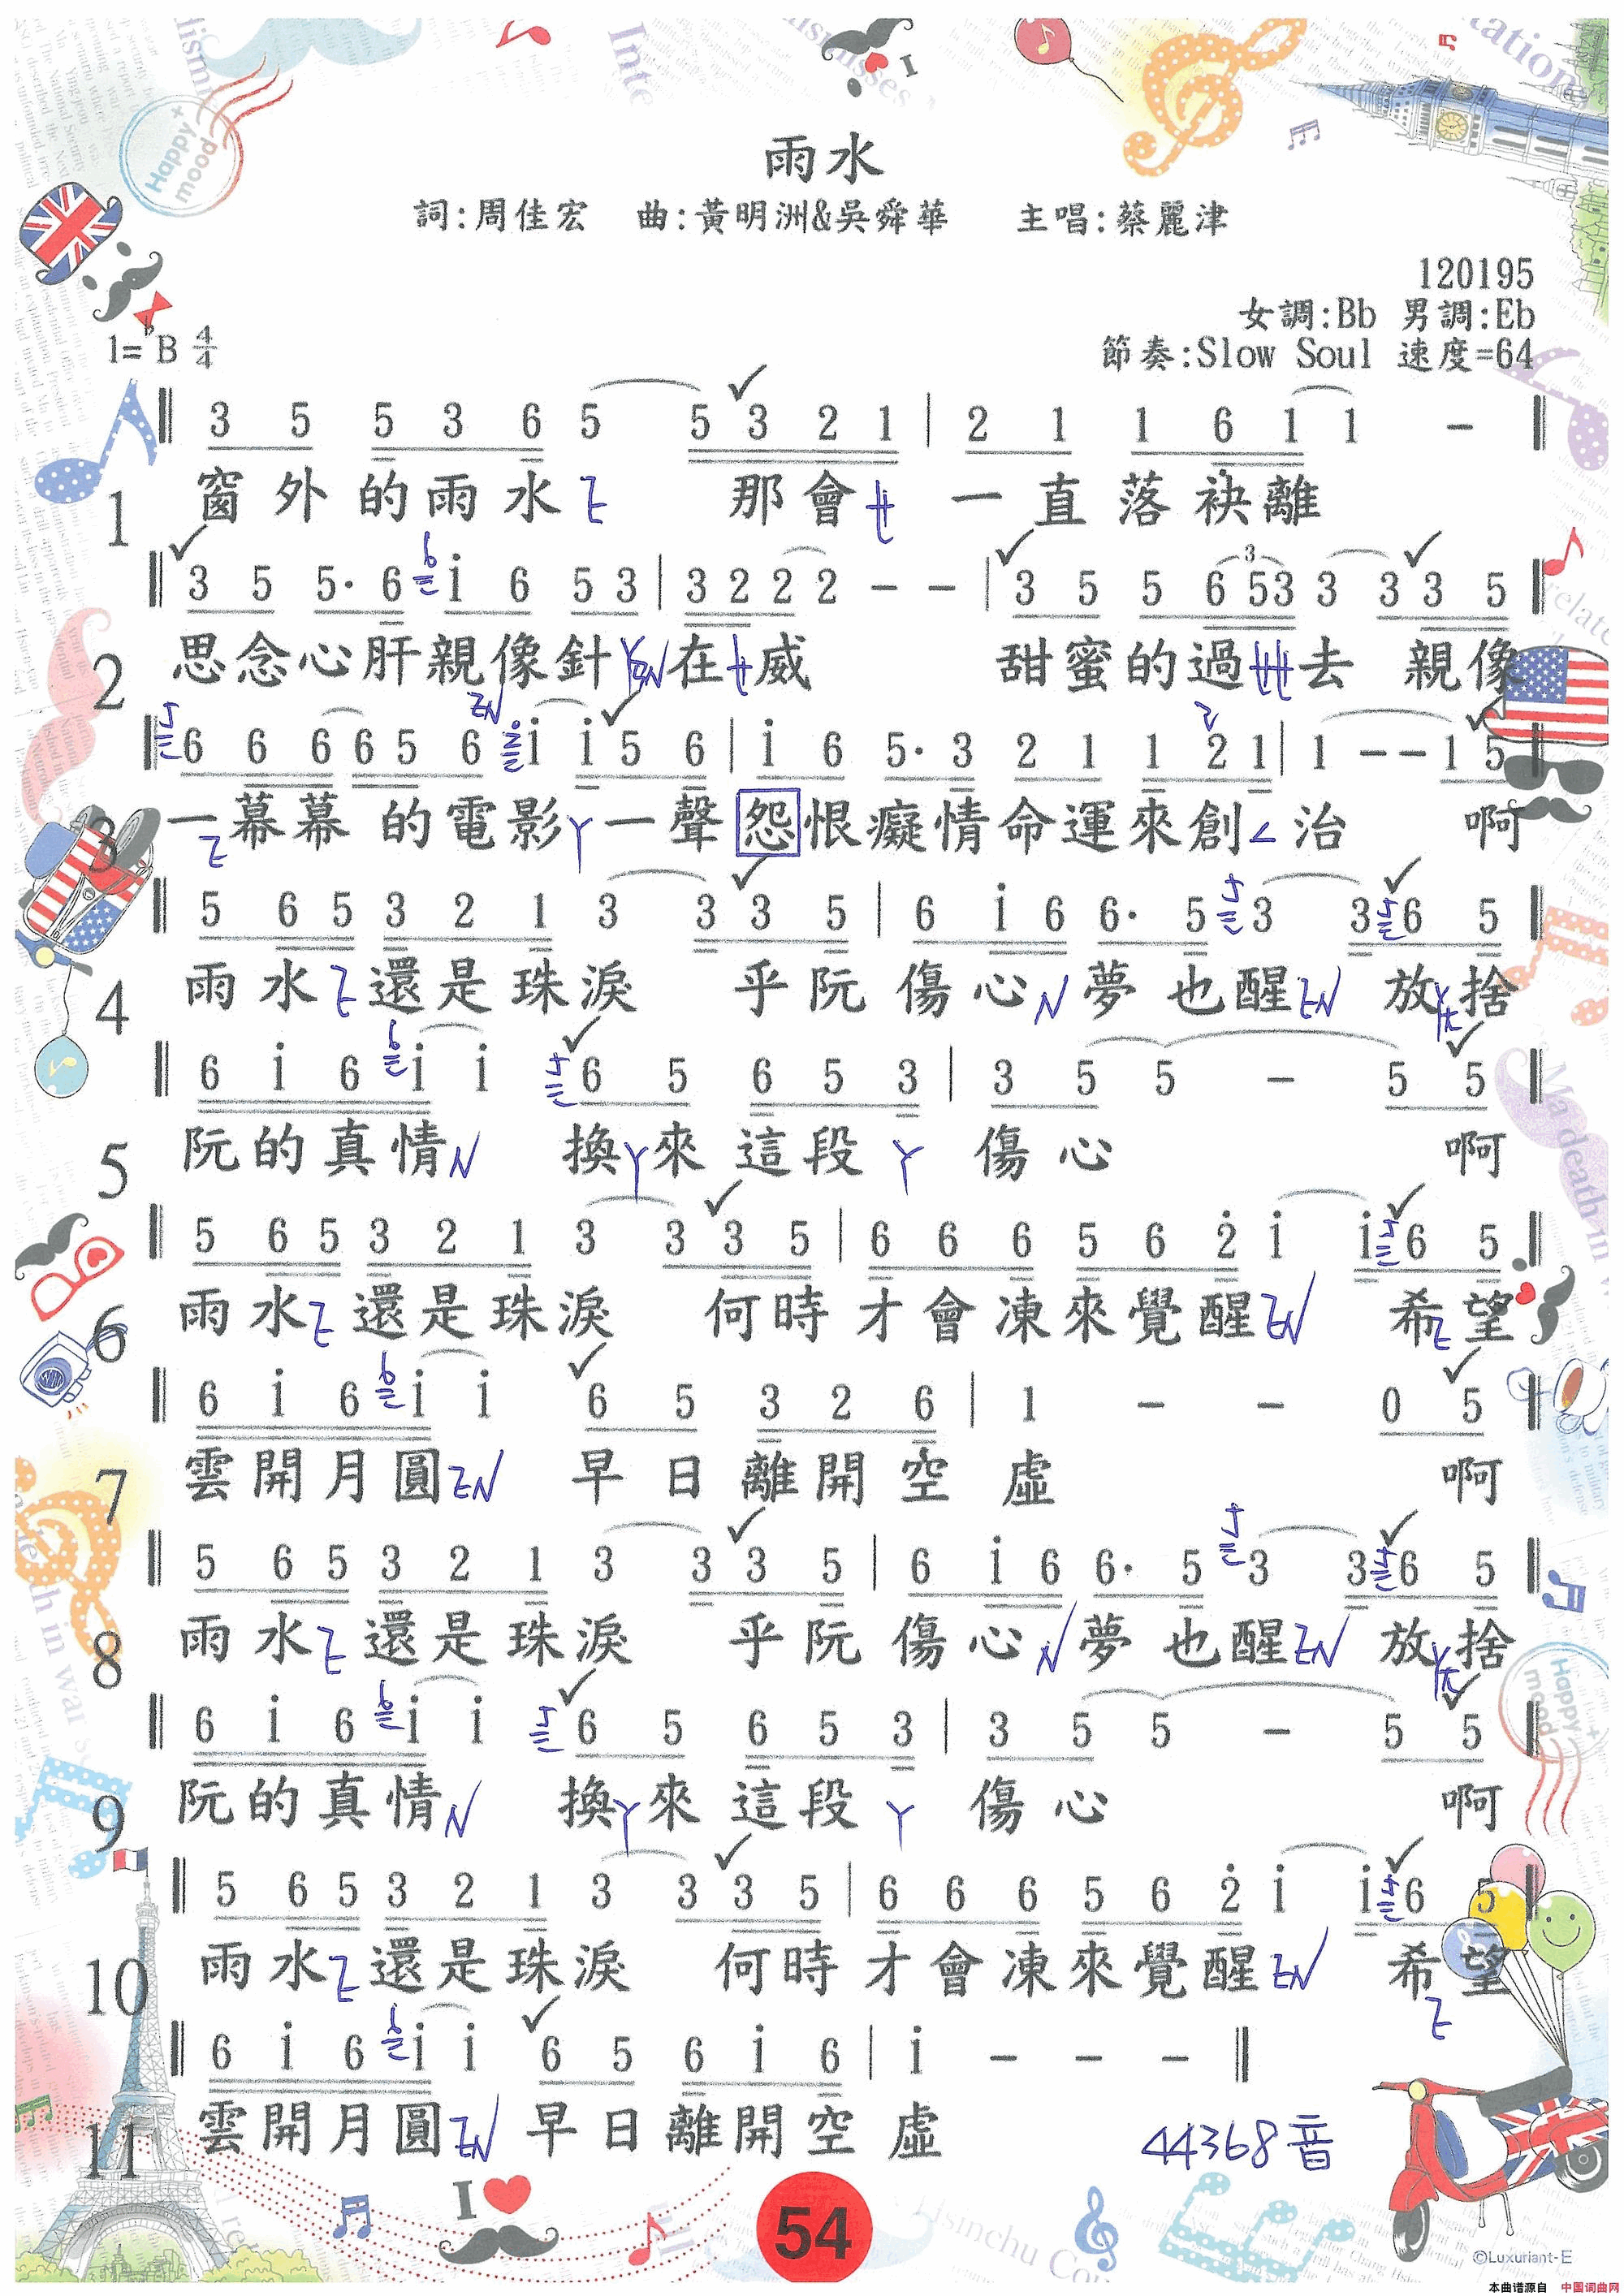 雨水
詞:周佳宏 曲:黃明洲&吳舜華 主唱:蔡麗津
120195
女調:Bb 男調:Eb
1=♭B 4/4 節奏:Slow Soul 速度=64
3 5 5 3 6 5 5 3 2 1 | 2 1 1 6̣ 1 1 -
1 窗外的雨水ㄟ 那會ㄝ 一直落袂離
3 5 5· 6 i 6 5 3 | 3 2 2 2 - - | 3 5 5 6 53 3 3 3 5
2 思念心肝親像針 在 威 甜蜜的過 去 親像
6 6 6 6 5 6 i i 5 6 | i 6 5· 3 2 1 1 2 1 | 1 - - 1 5
3 一幕幕的電影ㄚ一聲怨恨癡情命運來創ㄥ治 啊
5 6 5 3 2 1 3 3 3 5 | 6 i 6 6· 5 3 3 6 5
4 雨水ㄟ還是珠淚 乎阮傷心 夢也醒 放捨
6 i 6 i i 6 5 6 5 3 | 3 5 5 - 5 5
5 阮的真情 換ㄚ來這段ㄚ 傷心 啊
5 6 5 3 2 1 3 3 3 5 | 6 6 6 5 6 2̇ i i 6 5
6 雨水ㄟ還是珠淚 何時才會凍來覺醒 希ㄟ望
6 i 6 i i 6 5 3 2 6 | 1 - - 0 5
7 雲開月圓 早日離開空虛 啊
5 6 5 3 2 1 3 3 3 5 | 6 i 6 6· 5 3 3 6 5
8 雨水ㄟ還是珠淚 乎阮傷心 夢也醒 放捨
6 i 6 i i 6 5 6 5 3 | 3 5 5 - 5 5
9 阮的真情 換ㄚ來這段ㄚ 傷心 啊
5 6 5 3 2 1 3 3 3 5 | 6 6 6 5 6 2̇ i i 6 5
10 雨水ㄟ還是珠淚 何時才會凍來覺醒 希ㄟ望
6 i 6 i i 6 5 6 i 6 | i - - -
11 雲開月圓 早日離開空虛 44368音
I
54
©Luxuriant-E
本曲谱源自 中国词曲网
Happy+
mood
Happy+
mood